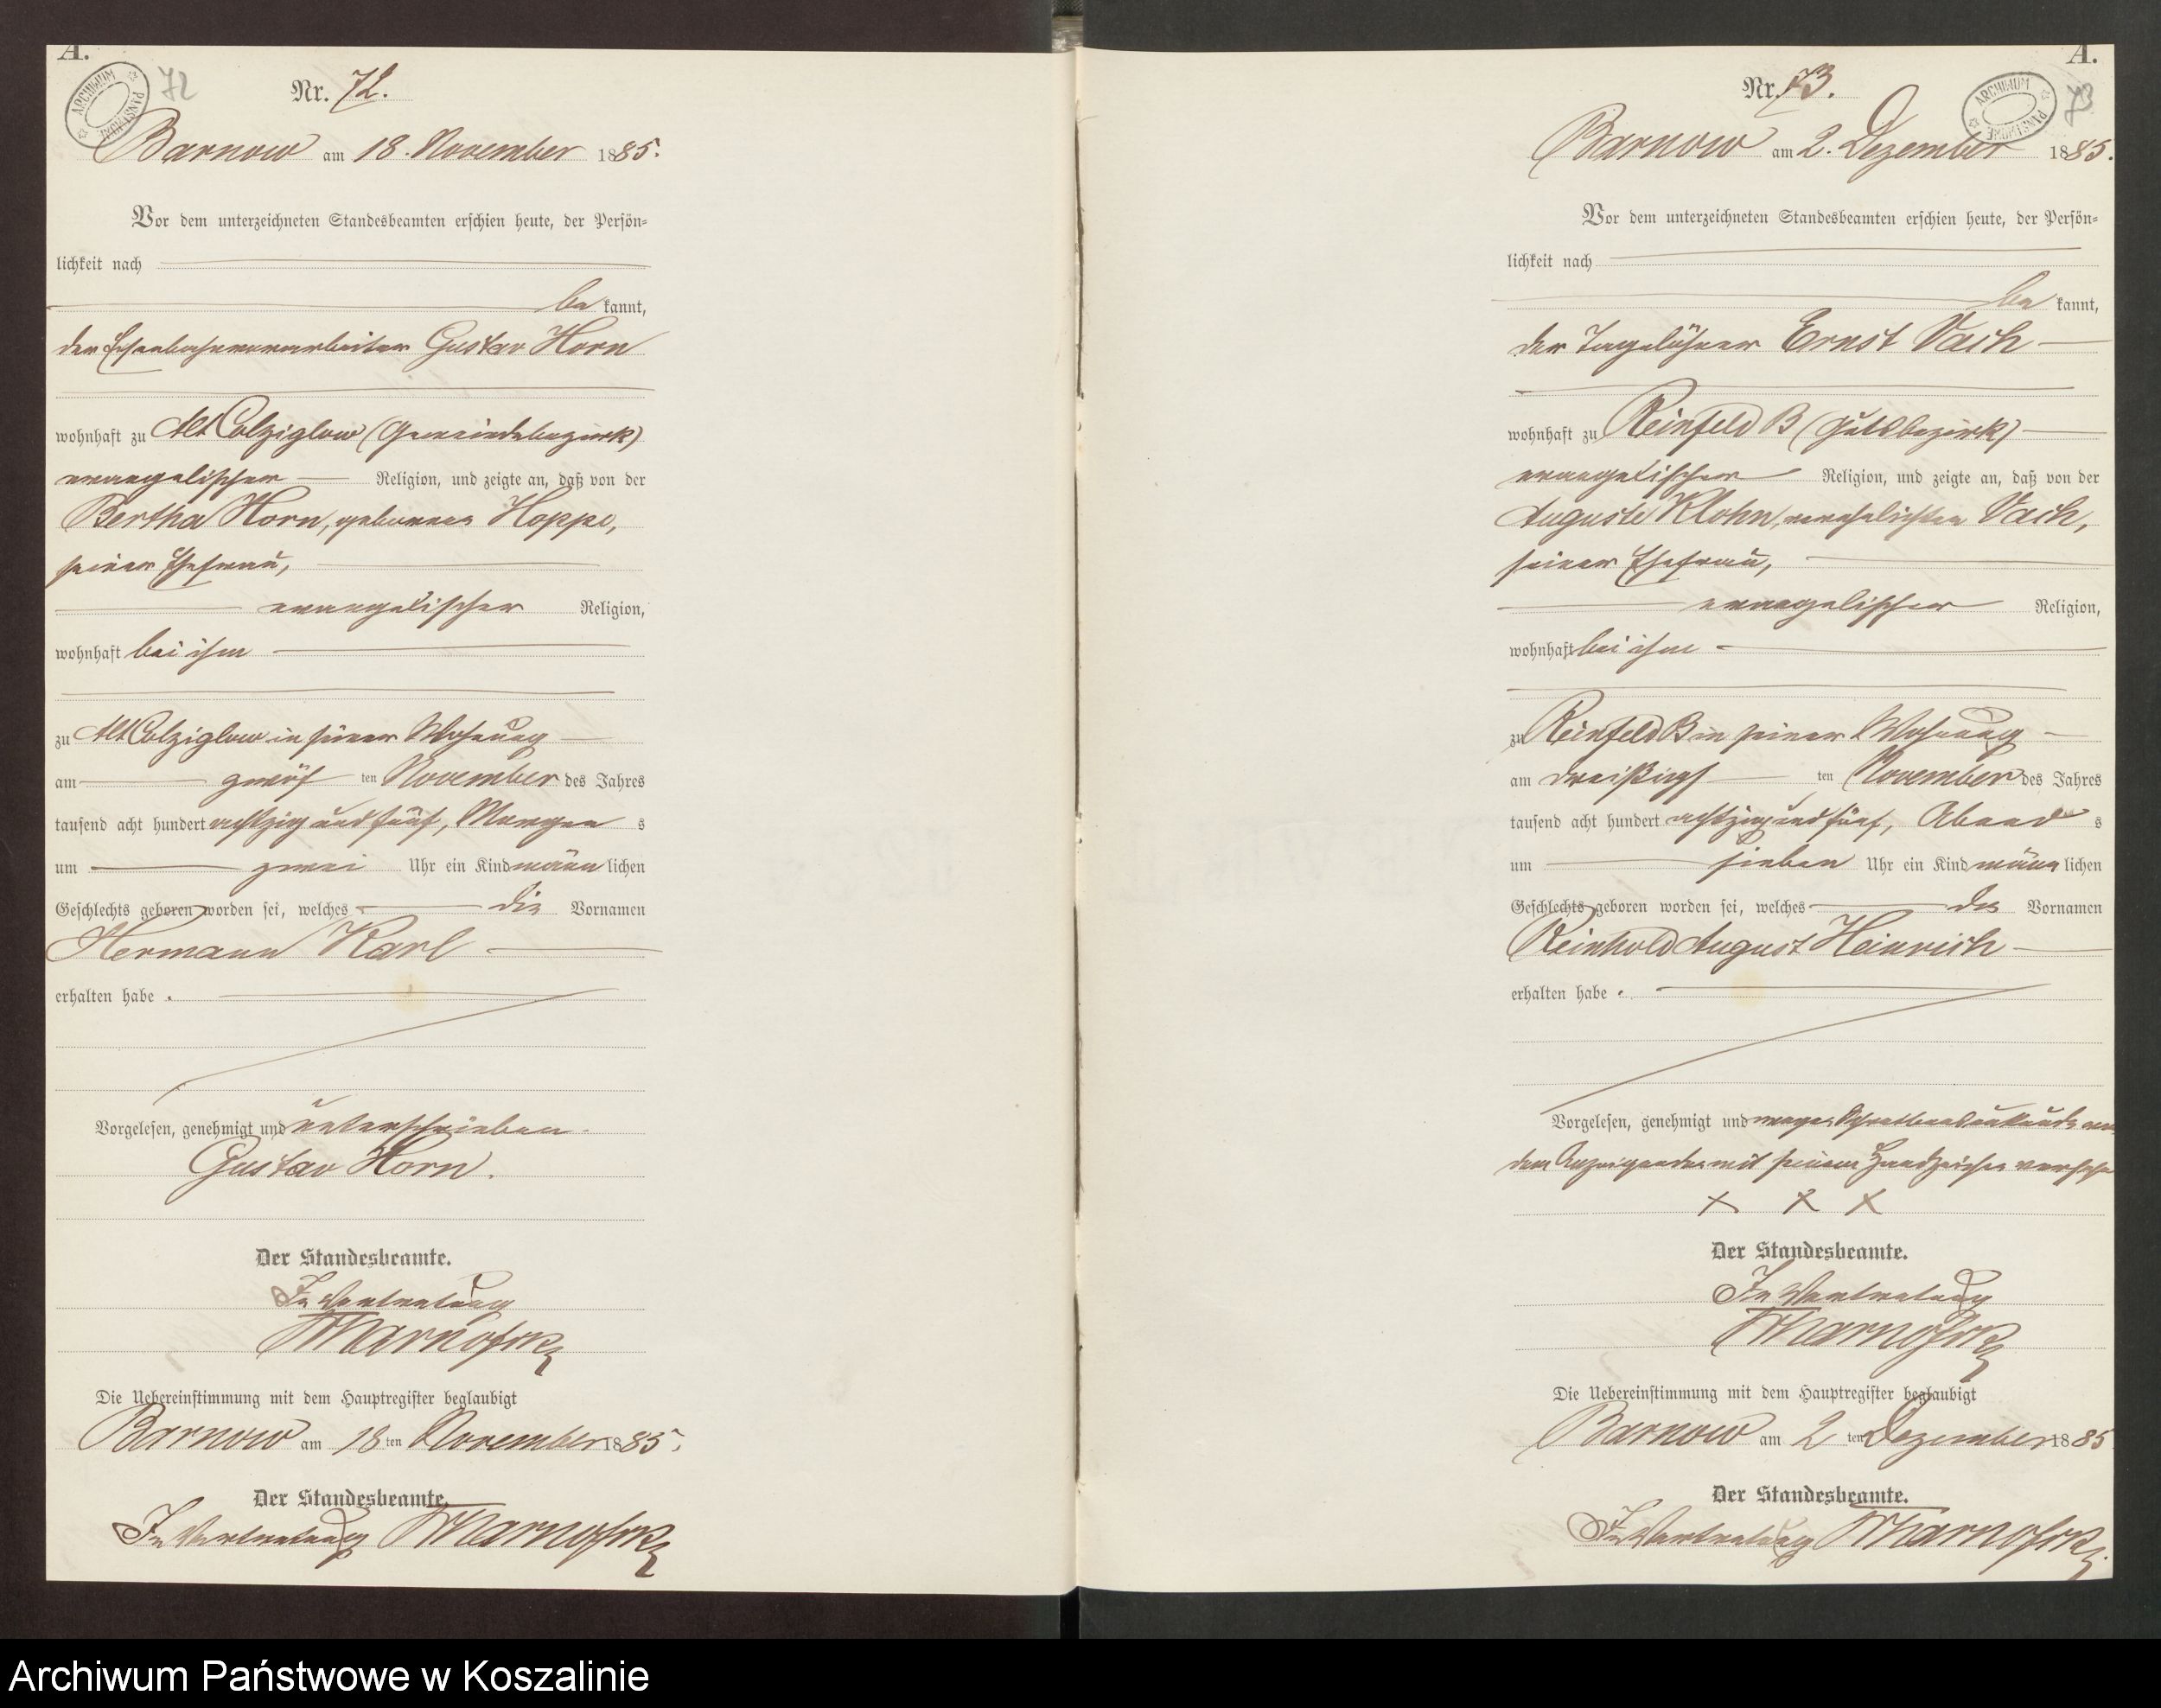 A.
ARCHIWUM PAŃSTWOWE
72
Nr. 72.
Barnow am 18. November 1885.
Vor dem unterzeichneten Standesbeamten erschien heute, der Persön-
lichkeit nach
be kannt,
der Eisenbahnvorarbeiter Gustav Horn
wohnhaft zu Alt Colziglow (Gemeindebezirk)
evangelischer Religion, und zeigte an, daß von der
Bertha Horn, geborenen Hoppe,
seiner Ehefrau,
evangelischer Religion,
wohnhaft bei ihm
zu Alt Colziglow in seiner Wohnung
am zwölf ten November des Jahres
tausend acht hundert achtzig und fünf, Morgen s
um zwei Uhr ein Kind männ lichen
Geschlechts geboren worden sei, welches die Vornamen
Hermann Karl
erhalten habe.
Vorgelesen, genehmigt und unterschrieben.
Gustav Horn.
Der Standesbeamte.
In Vertretung
Die Uebereinstimmung mit dem Hauptregister beglaubigt
Barnow am 18 ten November 1885.
Der Standesbeamte.
In Vertretung
A.
ARCHIWUM PAŃSTWOWE
73
Nr. 73.
Barnow am 2. Dezember 1885.
Vor dem unterzeichneten Standesbeamten erschien heute, der Persön-
lichkeit nach
be kannt,
der Tagelöhner Ernst Vach
wohnhaft zu Reinfeld B (Gutsbezirk)
evangelischer Religion, und zeigte an, daß von der
Auguste Klohn, verehelichten Vach,
seiner Ehefrau,
evangelischer Religion,
wohnhaft bei ihm
zu Reinfeld B in seiner Wohnung
am dreißigs ten November des Jahres
tausend acht hundert achtzig und fünf, Abend s
um sieben Uhr ein Kind männ lichen
Geschlechts geboren worden sei, welches die Vornamen
Reinhold August Heinrich
erhalten habe.
Vorgelesen, genehmigt und wegen Schreibensunkunde von
dem Anzeigenden mit seinem Handzeichen versehen
X X X
Der Standesbeamte.
In Vertretung
Die Uebereinstimmung mit dem Hauptregister beglaubigt
Barnow am 2 ten Dezember 1885
Der Standesbeamte.
In Vertretung
Archiwum Państwowe w Koszalinie